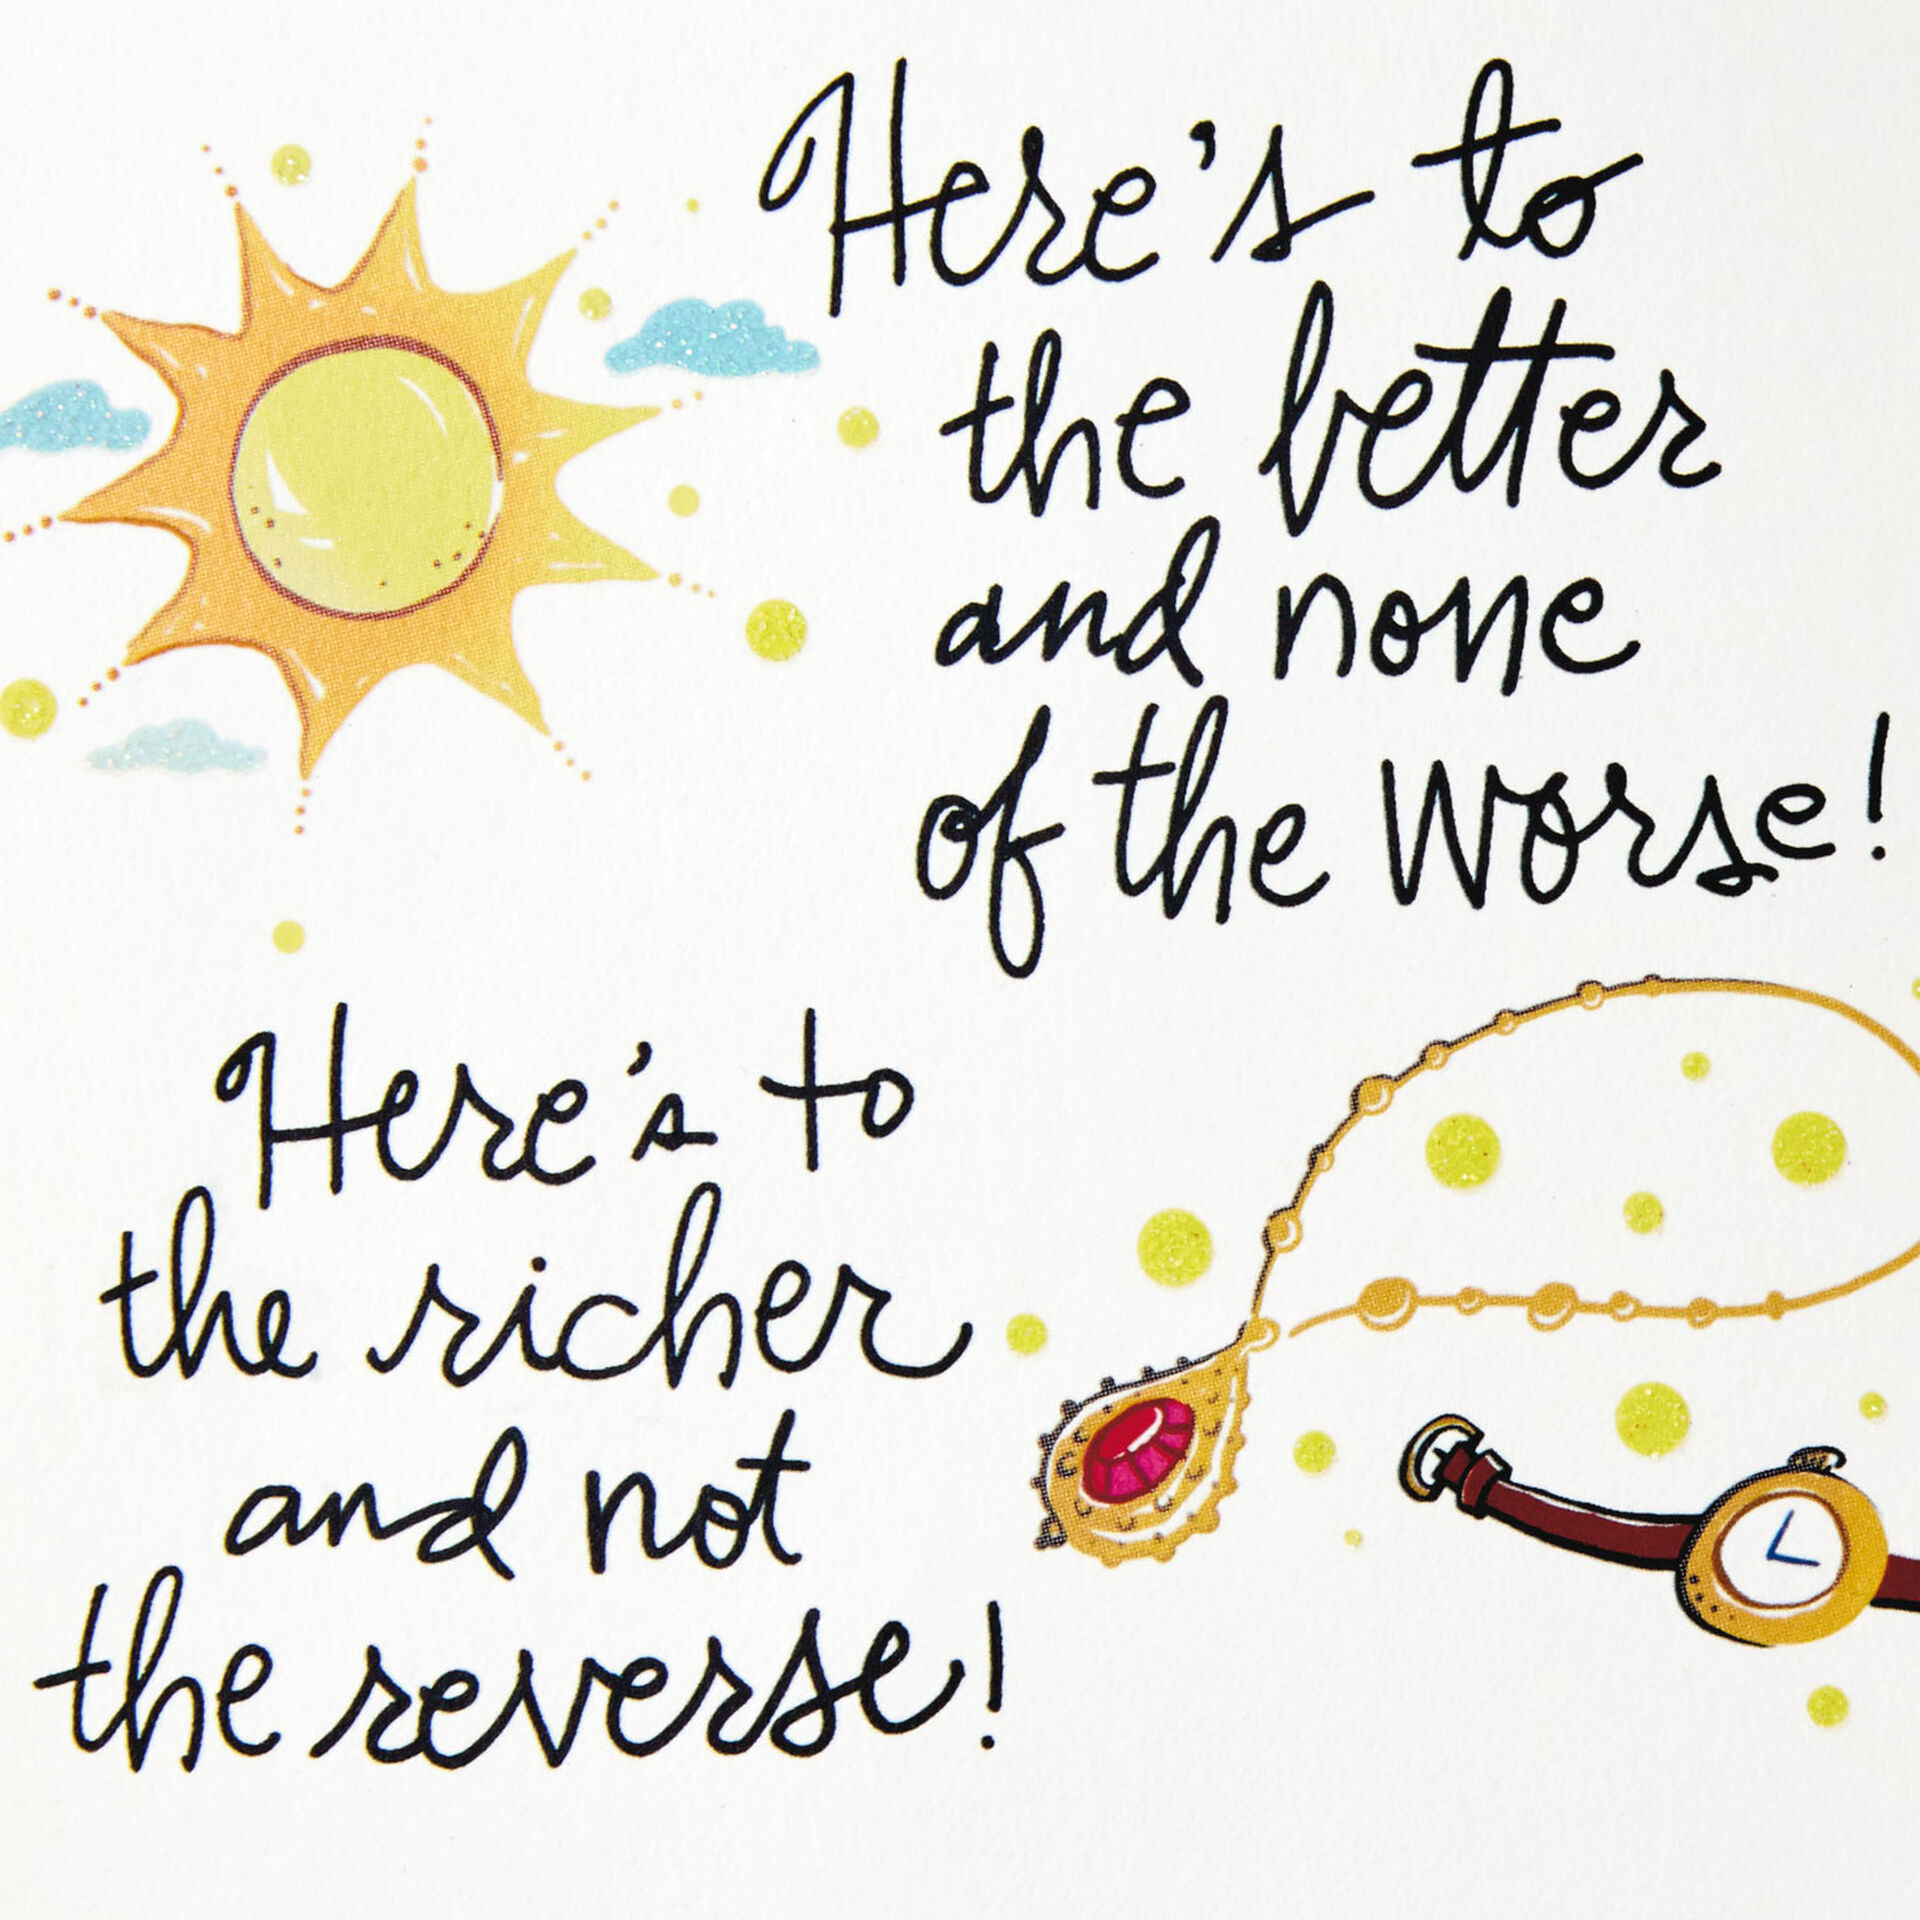 Here's to
the better
and none
of the worse!
Here's to
the richer
and not
the reverse!